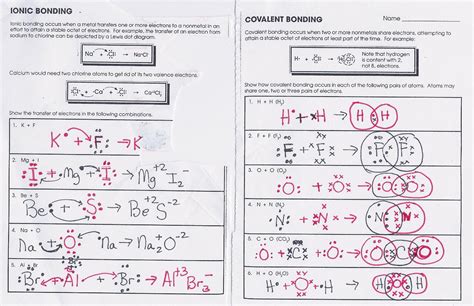 IONIC BONDING
Ionic bonding occurs when a metal transfers one or more electrons to a nonmetal in an
effort to attain a stable octet of electrons. For example, the transfer of an electron from
sodium to chlorine can be depicted by a Lewis dot diagram.
Calcium would need two chlorine atoms to get rid of its two valence electrons.
Show the transfer of electrons in the following combinations.
1. K + F
K + F → K
2. Mg + I
I + Mg + I → Mg+2 I2-
3. Be + S
Be + S → Be+2 S-2
4. Na + O
Na + O → Na2O-2
5. Al + Br
Br + Al + Br → Al+3 Br3-
Br
COVALENT BONDING
Name
Covalent bonding occurs when two or more nonmetals share electrons, attempting to
attain a stable octet of electrons at least part of the time. For example:
Note that hydrogen
is content with 2,
not 8, electrons.
Show how covalent bonding occurs in each of the following pairs of atoms. Atoms may
share one, two or three pairs of electrons.
1. H + H (H2)
H + H → H H
2. F + F (F2)
F + F → F F
3. O + O (O2)
O + O → O O
4. N + N (N2)
N + N → N N
5. C + O (CO2)
O + C + O → O C O
6. H + O (H2O)
H + O + H → H O H